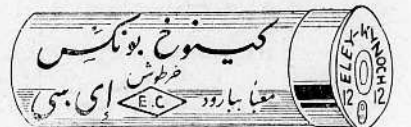 كينوخ بوكس
خرطوش
معبأ ببارود E.C إي سي
ELEY KYNOCH
12 12